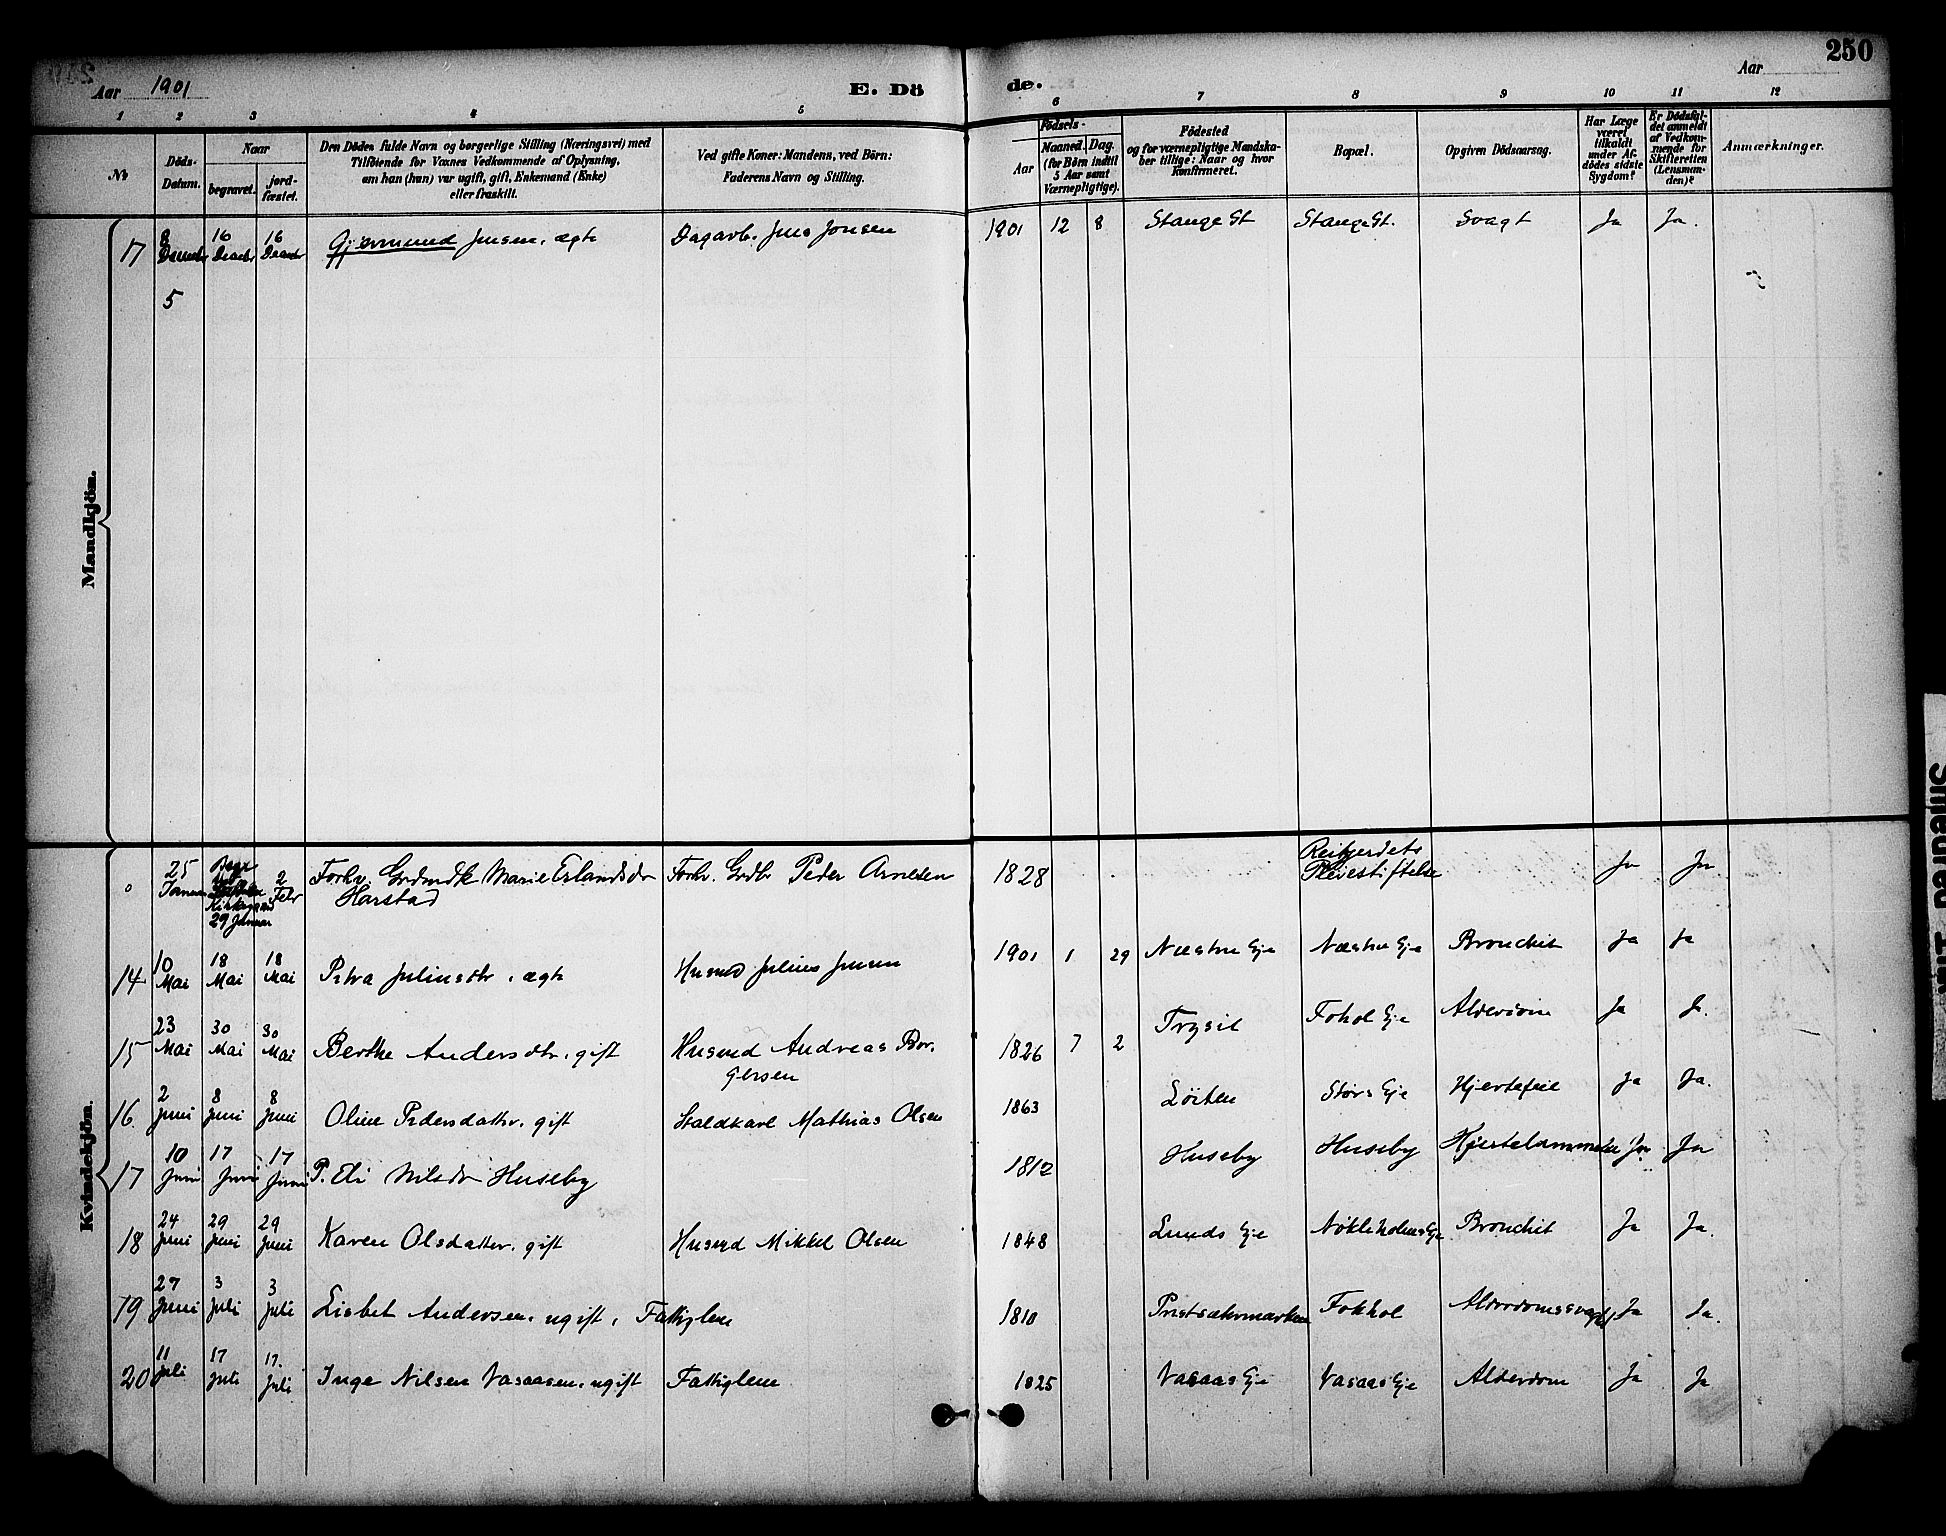 250
Aar 1901
E. Dö de.
Aar
1 2 3 4 5 6 7 8 9 10 11 12
№
Döds-Datum.
Naar
begravet.
jord-fæstet.
Den Dödes fulde Navn og borgerlige Stilling (Næringsvei) med
Tilföiende for Voxnes Vedkommende af Oplysning,
om han (hun) var ugift, gift, Enkemand (Enke)
eller fraskilt.
Ved gifte Koner: Mandens, ved Börn:
Faderens Navn og Stilling.
Födsels-
Aar
Maaned. Dag.
(for Börn indtil
5 Aar samt
Værnepligtige).
Födested
og for værnepligtige Mandska-
ber tillige: Naar og hvor
konfirmeret.
Bopæl.
Opgiven Dödsaarsag.
Har Læge
været
tilkaldt
under Af-
dödes sidste
Sygdom?
Er Dödsfal-
det anmeldt
af Vedkom-
mende for
Skifteretten
(Lensman-
den)?
Anmærkninger.
Mandkjön.
17 8 Decmbr 16 Decmbr 16 Decmbr Gjörmund Jensen, ægte Dagarb. Jens Jonsen 1901 12 8 Stange St Stange St. Svagt Ja Ja.
5
Kvindekjön.
25 Januar 29 Januar 2 Febr Forhv. Grdmdk Marie Erlandsdr Harstad Forhv. Grdbr Peder Arnesen 1828 Pleiestiftelse Ja Ja
14 10 Mai 18 Mai 18 Mai Petra Juliusdtr, ægte Husmd Julius Jensen 1901 1 29 Næstve Eje Næstve Eje Bronchit Ja Ja
15 23 Mai 30 Mai 30 Mai Berthe Andersdtr, gift Husmd Andreas Bor-
gersen 1826 7 2 Trysil Fokol Eje Alderdom Ja Ja
16 2 Juni 8 Juni 8 Juni Oline Pedersdatter, gift Staldkarl Mathias Olsen 1863 Löiten Störs Eje Hjertefeil Ja Ja.
17 10 Juni 17 Juni 17 Juni P. Eli Nilsdr Huseby 1812 Huseby Huseby Hjertelammelse Ja Ja
18 24 Juni 29 Juni 29 Juni Karen Olsdatter, gift Husmd Mikkel Olsen 1848 Lunds Eje Nökleholms Eje Bronchit Ja Ja.
19 27 Juni 3 Juli 3 Juli Lisbet Andersen, ugift, Fattiglem 1810 Prestsætermarken Fokhol Alderdomssvaghd Ja Ja.
20 11 Juli 17 Juli 17. Juli Inge Nilsen Vasaasen, ugift Fattiglem 1825 Vasaas Eje Vasaas Eje Alderdom Ja Ja